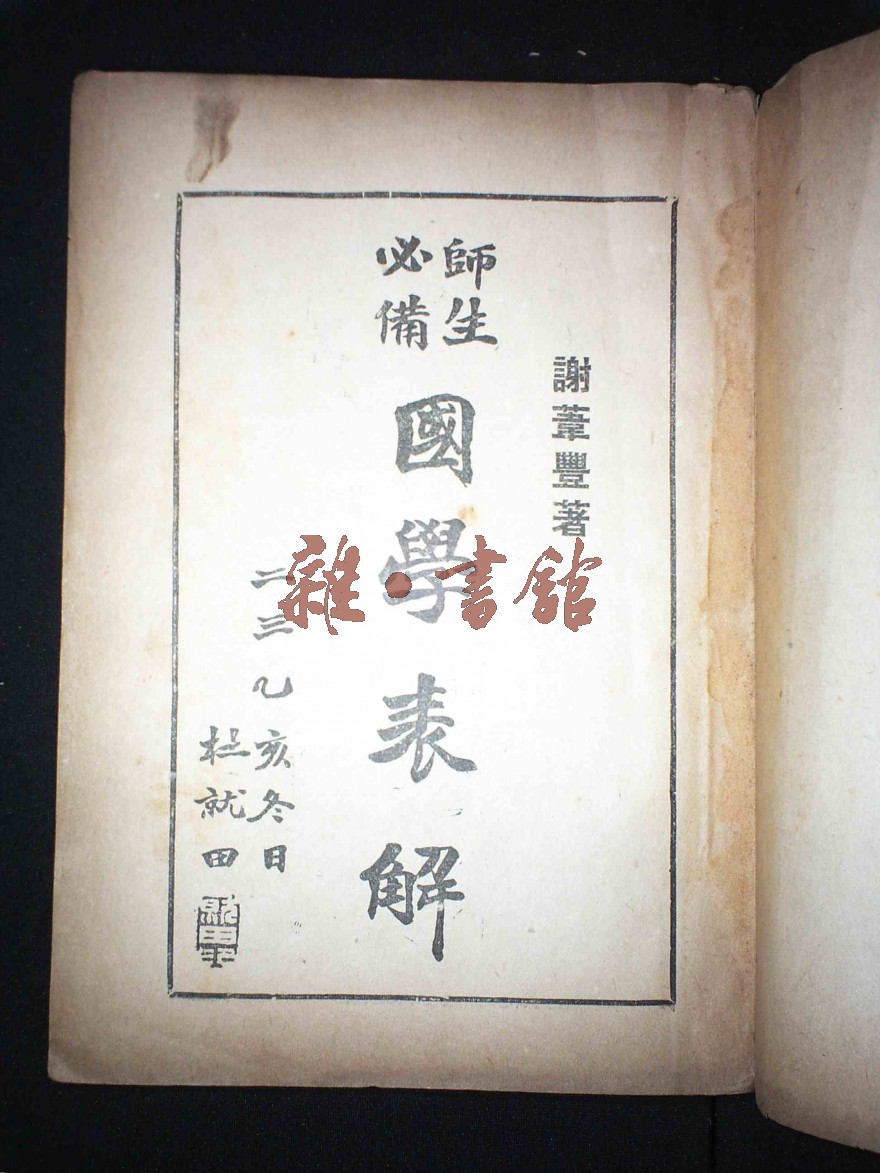 謝葦豐著
師生
必備
國學表解
二三乙亥冬日
杜就田
雜·書館